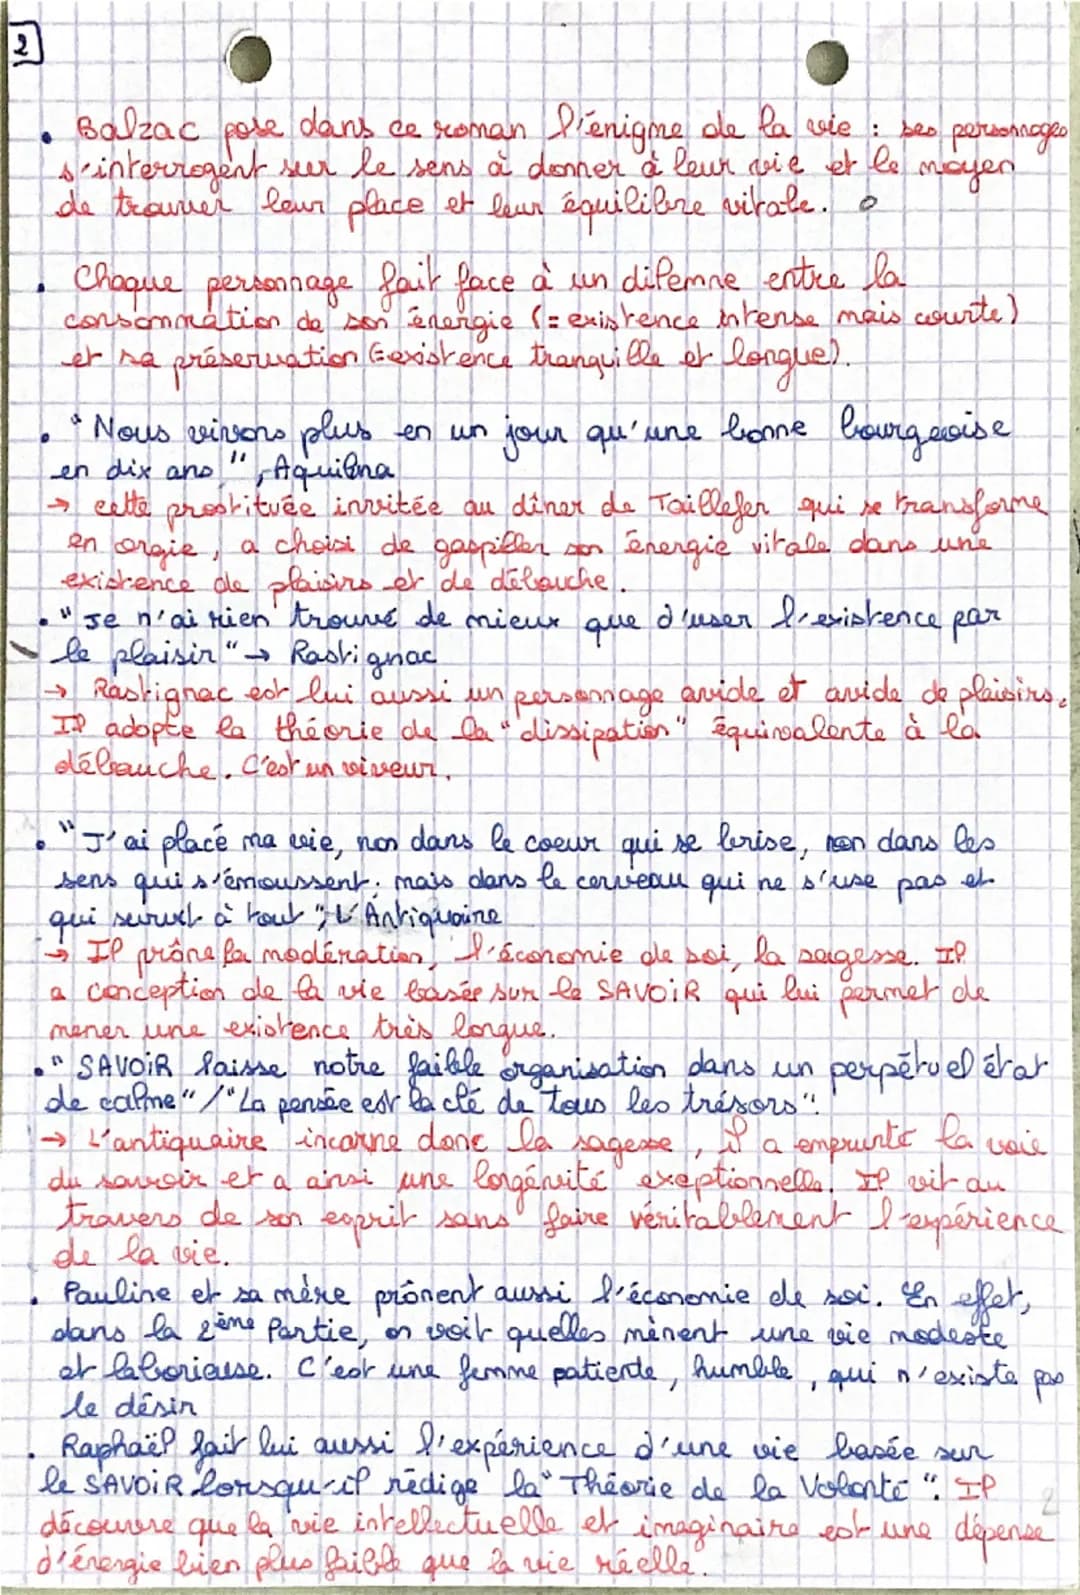 2
• Balzac pose dans ce roman l'énigme de la vie : ses personnages
s'interrogent sur le sens à donner à leur vie et le moyen
de trouver leur place et leur équilibre vitale.
• Chaque personnage fait face à un dilemne entre la
consommation de son énergie (= existence intense mais courte)
et sa préservation (= existence tranquille et longue).
• "Nous vivons plus en un jour qu'une bonne bourgeoise
en dix ans", Aquilina
→ cette prostituée invitée au dîner de Taillefer qui se transforme
en orgie, a choisi de gaspiller son énergie vitale dans une
existence de plaisirs et de débauche.
• "Je n'ai rien trouvé de mieux que d'user l'existence par
le plaisir" → Rastignac
→ Rastignac est lui aussi un personnage avide et avide de plaisirs.
Il adopte la théorie de la "dissipation" équivalente à la
débauche. C'est un viveur.
• "J'ai placé ma vie, non dans le coeur qui se brise, non dans les
sens qui s'émoussent; mais dans le cerveau qui ne s'use pas et
qui survit à tout"; L'Antiquaire
→ Il prône la modération, l'économie de soi, la sagesse. Il
a conception de la vie basée sur le SAVOIR qui lui permet de
mener une existence très longue.
• "SAVOIR laisse notre faible organisation dans un perpétuel état
de calme" / "La pensée est la clé de tous les trésors".
→ L'antiquaire incarne donc la sagesse, il a emprunté la voie
du savoir et a ainsi une longévité exeptionnelle. Il vit au
travers de son esprit sans faire véritablement l'expérience
de la vie.
• Pauline et sa mère prônent aussi l'économie de soi. En effet,
dans la 2ème Partie, on voit quelles mènent une vie modeste
et laborieuse. C'est une femme patiente, humble, qui n'existe pas
le désir
• Raphaël fait lui aussi l'expérience d'une vie basée sur
le SAVOIR lorsqu'il rédige la "Théorie de la Volonté". Il
découvre que la vie intellectuelle et imaginaire est une dépense
d'énergie bien plus faible que la vie réelle.
2